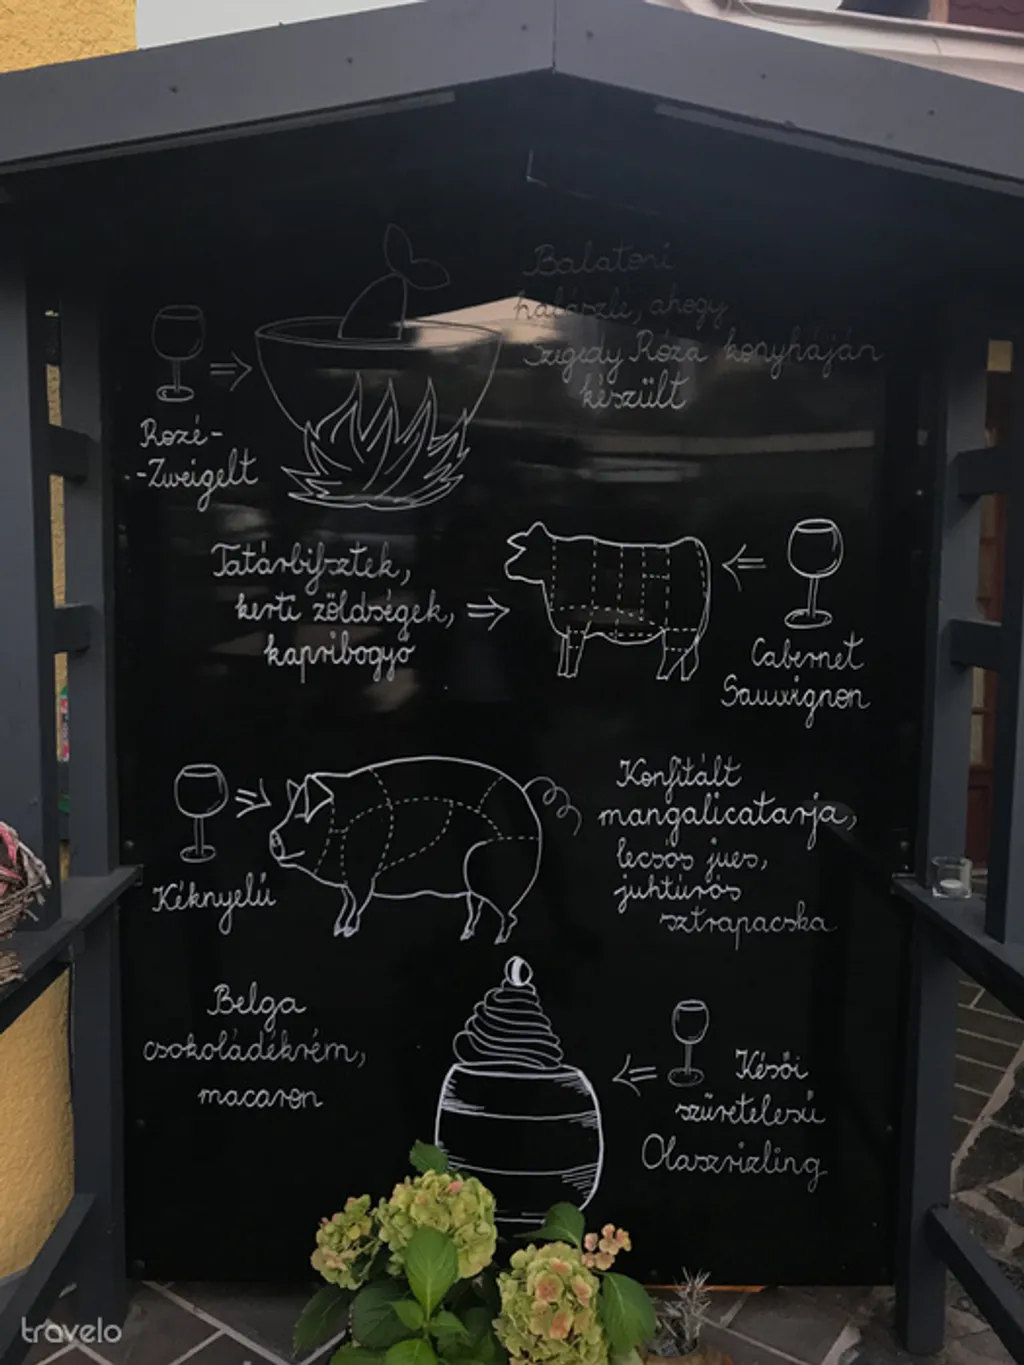 Balatoni
halászlé, ahogy
Szegedy Róza konyháján
készült
Rozé-
-Zweigelt
Tatárbifsztek,
kerti zöldségek,
kapribogyó
Cabernet
Sauvignon
Kéknyelű
Konfitált
mangalicatarja,
lecsós jues,
juhtúrós
sztrapacska
Belga
csokoládékrém,
macaron
Késői
szüretelesű
Olaszrizling
travelo